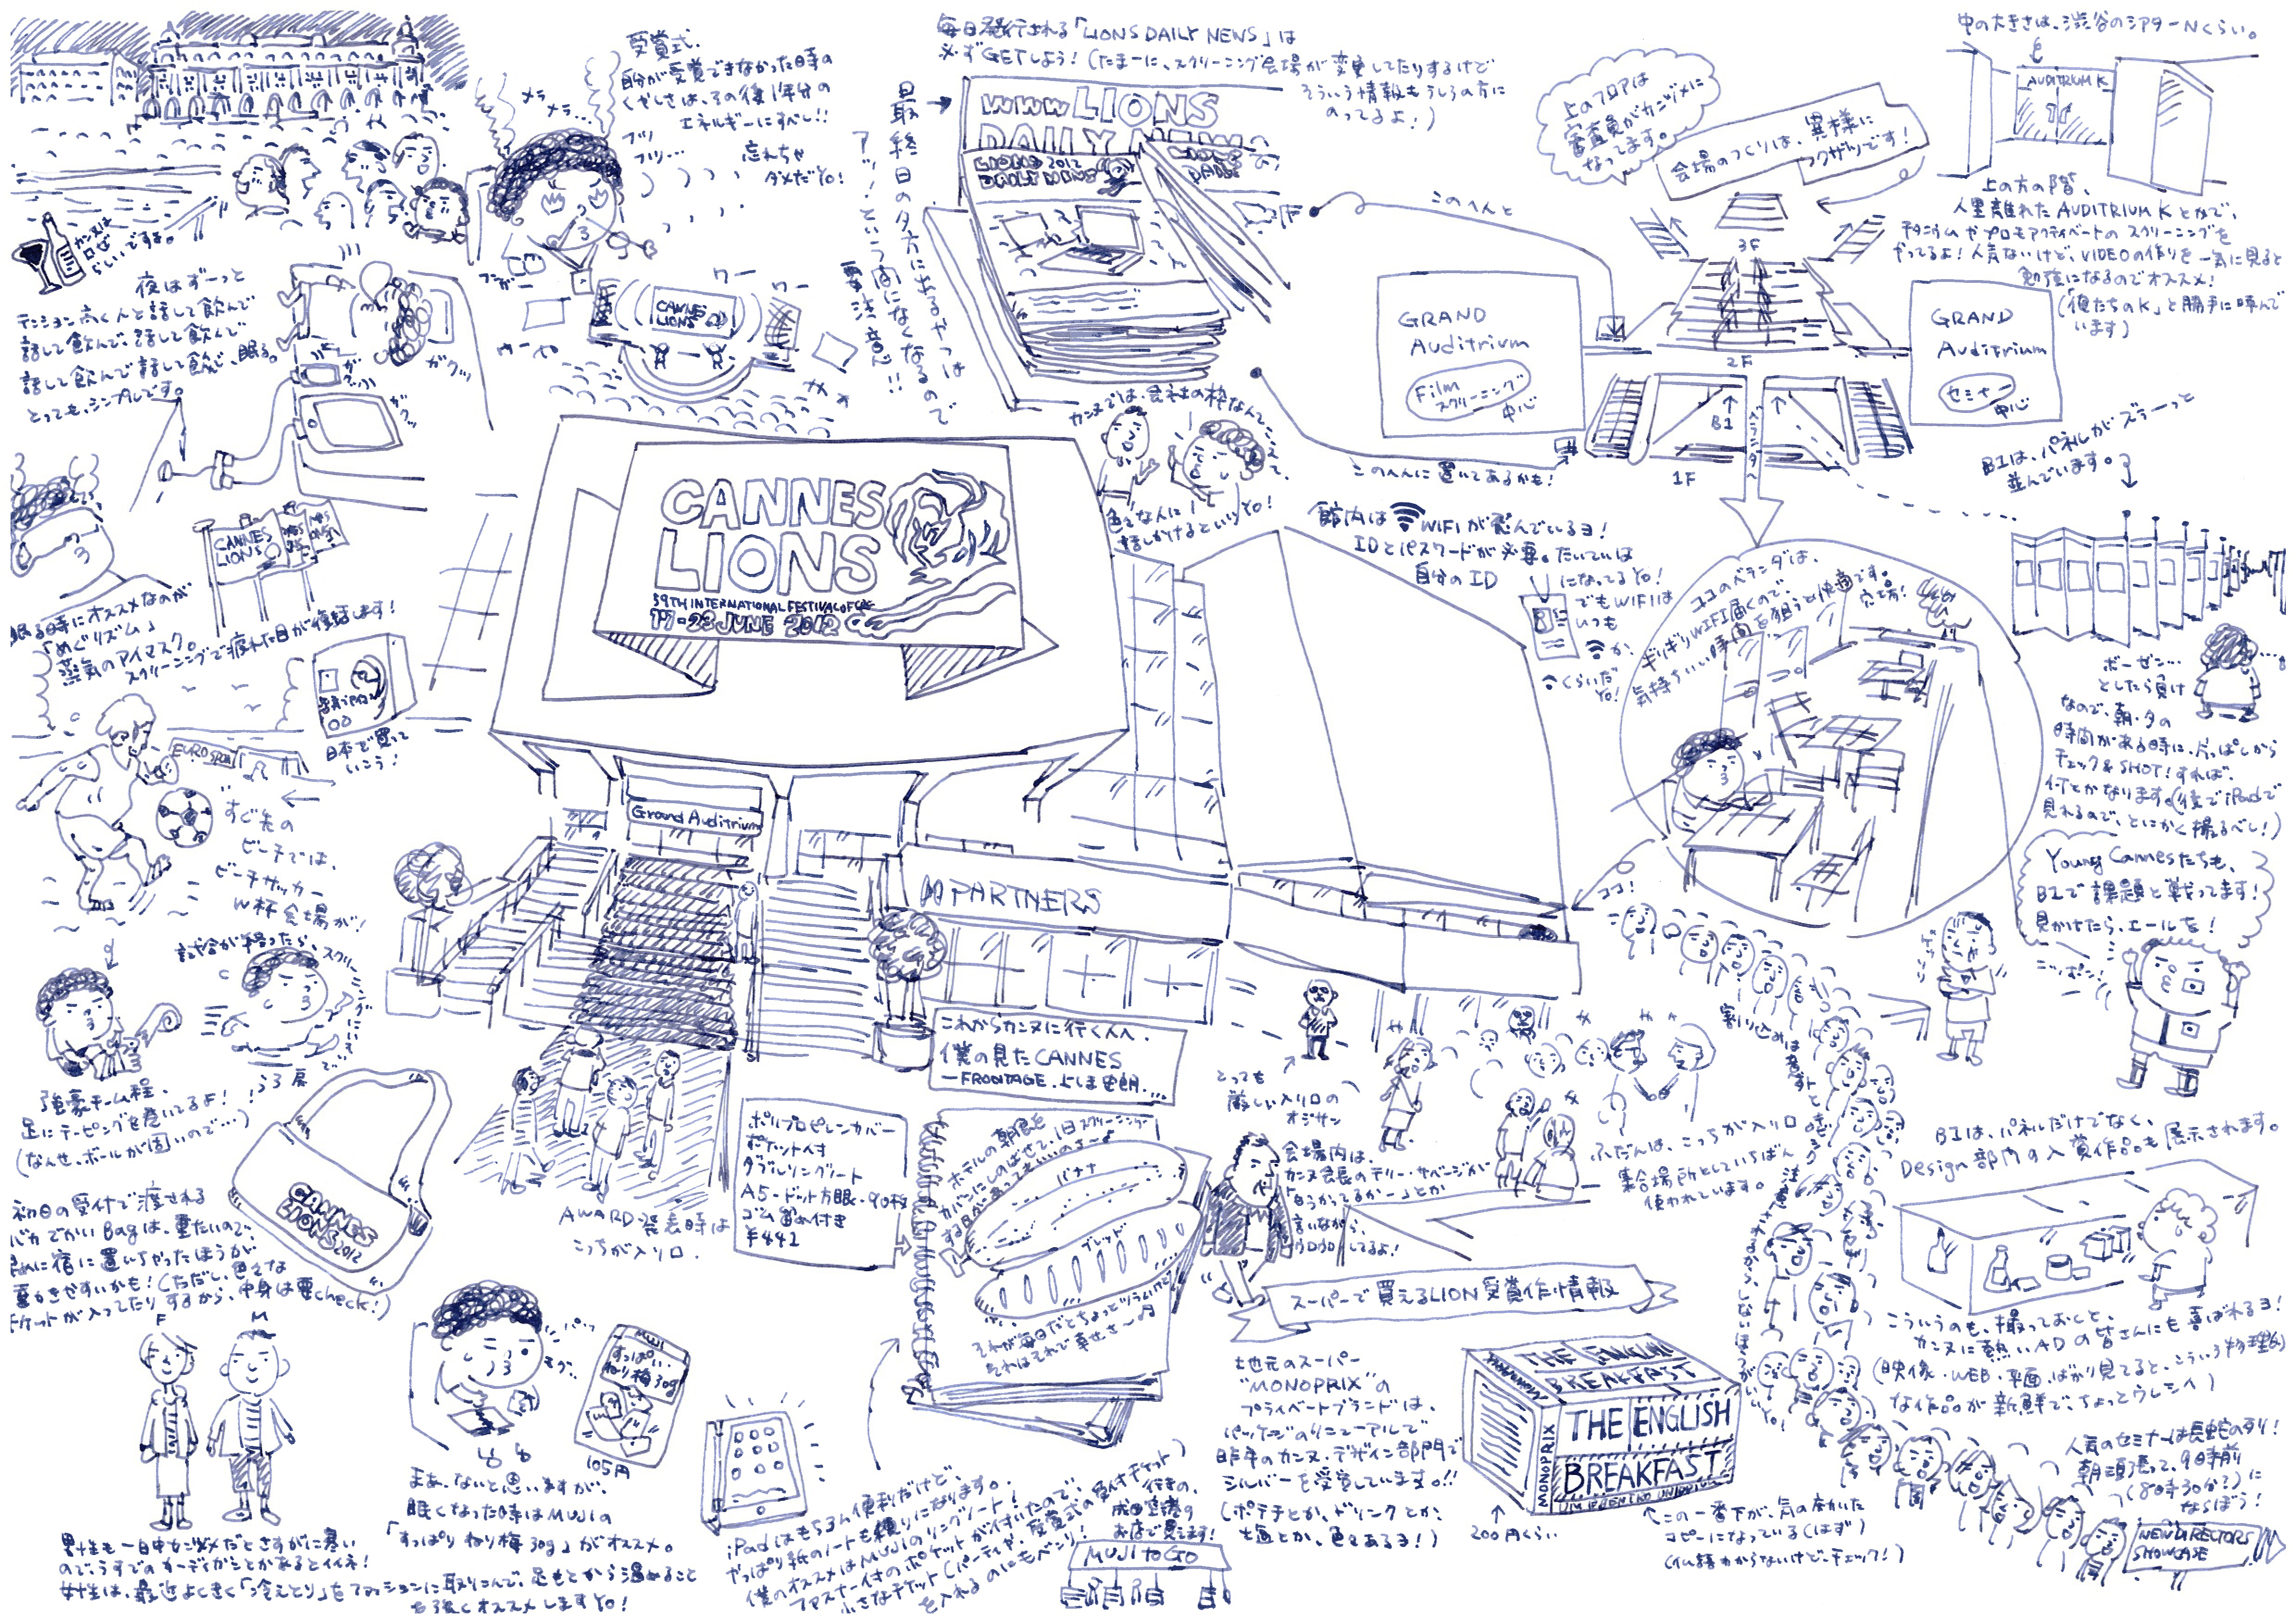 受賞式.
自分が受賞できなかった時の
くやしさは、その後1年分の
エネルギーにすべし!!
忘れちゃ
ダメだYO!
メラ
メラ…
ブツ
ブツ…
カンヌは
ロゼ
らしいですよ。
夜はずーっと
テンション高く人と話して飲んで
話して飲んで、話して飲んで
話して飲んで話して飲んで、眠る。
とっても、シンプルです。
ガクッ
ワー
ワー
CANNES
LIONS
毎日発行される「LIONS DAILY NEWS」は
必ずGETしよう!(たまーに、スクリーニング会場が変更してたりするけど
そういう情報もうしろの方に
のってるよ!)
最終日の夕方に出るやつは
アッ!という間になくなるので
要注意!!
www LIONS
DAILY NEWS
LIONS 2012
DAILY NEWS
このへんと
このへんに置いてあるかも!
上のフロアは
審査員がカンヅメに
なってます。
会場のつくりは、異様に
フクザツです!
中の大きさは、渋谷のシアターNくらい。
AUDITRIUM K
上の方の階、
人里離れた AUDITRIUM Kとかで、
チタニウムやプロモアクティベートの スクリーニングを
やってるよ!人気ないけど、VIDEOの作りを一気に見ると
勉強になるのでオススメ!
(「俺たちのK」と勝手に呼んで
います)
3F
2F
B1
1F
ベランダへ
GRAND
Auditrium
Film
スクリーニング
中心
GRAND
Auditrium
セミナー
中心
B1は、パネルがズラーっと
並んでいます。
カンヌでは、会社の枠なんてこえて、
色々な人に
話しかけるといいYO!
CANNES
LIONS
59TH INTERNATIONAL FESTIVAL OF
17-23 JUNE 2012
館内は WIFIが飛んでいるヨ!
IDとパスワードが必要。たいていは
自分のID
になってるYO!
でもWIFIは
いつも
か、
くらいだ
YO!
ココのベランダは、
ギリギリWIFI届くので、
気持ちいい時間を狙うと快適です。
穴場!
ココ!
ボーゼン…
としたら負け
なので、朝・夕の
時間がある時に、片っぱしから
チェック&SHOT!すれば、
何とかなります。(後でiPadで
見れるので、とにかく撮るべし!)
Young Cannesたちも、
B1で課題と戦ってます!
見かけたら、エールを!
ニッポン!
CANNES
LIONS
眠る時にオススメなのが
「めぐリズム」
蒸気のアイマスク。
スクリーニングで疲れた目が復活します!
日本で買って
いこう!
EURO SPORT
すぐ先の
ビーチでは、
ビーチサッカー
W杯会場が!
試合が終ったら、スクリーニングにもどる
強豪チーム程、
足にテーピングを巻いてるよ!
(なんせ、ボールが固いので…)
Grand Auditrium
PARTNERS
これからカンヌに行く人へ.
僕の見たCANNES
—FRONTAGE.
AWARD発表時は
こっちが入り口.
ポリプロピレンカバー
ポケット付
ダブルリングノート
A5・ドット方眼・90枚
ゴム留め付き
¥441
CANNES
LIONS
2012
初日の受付で渡される
バカでかいBagは、重たいので、
即に宿に置いちゃったほうが
動きやすいかも!(ただし、色々な
チケットが入ってたりするから、中身は要check!)
ホテルの朝食を
カバンにしのばせて、1日スクリーニング
する日があってもいいのさ~♪
バナナ
ブレッド
それが毎日だとちょっとツラいけど、
それはそれで幸せさ~♪
とっても
厳しい入り口の
オジサン
会場内は、
カンヌ会長のテリー・サベージが
言いながら、
ウロウロしてるよ!
ふだんは、こっちが入り口。
集合場所としていちばん
使われています。
割り込みは意外と
B1は、パネルだけでなく、
Design部門の入賞作品も展示されます。
こういうのも、撮っておくと、
カンヌに熱いADの皆さんにも喜ばれるヨ!
(映像・WEB・平面ばかり見てると、こういう物理的
な作品が新鮮で、ちょっとウレシイ)
スーパーで買えるLION受賞作情報
地元のスーパー
“MONOPRIX”の
プライベートブランドは、
パッケージのリニューアルで
昨年のカンヌ・デザイン部門で
シルバーを受賞しています。!!
(ポテチとか、ドリンクとか、
塩とか、色々あるヨ!)
THE ENGLISH
BREAKFAST
THE ENGLISH
BREAKFAST
MONOPRIX
200円くらい
この一番下が、気の利いた
コピーになっている(はず)
(仏語わからないけど、チェック!)
人気のセミナーは長蛇の列!
朝頑張って、9時前
(8時30分?)に
ならぼう!
NEW DIRECTORS
SHOWCASE
F
M
男性も一日中短パンだとさすがに寒い
ので、うすでのカーディガンとかあるとイイネ!
女性は、最近よくきく「冷えとり」をファッションに取りこんで、足もとから温めること
を強くオススメしますYO!
MUJI
すっぱい
ねり梅30g
105円
まあ、ないと思いますが、
眠くなった時はMUJIの
「すっぱいねり梅30g」がオススメ。
iPadはもちろん便利だけど、
やっぱり紙のノートも頼りになります。
僕のオススメはMUJIのリングノート!
ファスナー付のポケットが付いたので、
小さなチケット(パーティや、受賞式の受付チケット)
を入れるのにもベンリ!
行きの、
成田空港の
お店で買えます!
MUJI to GO